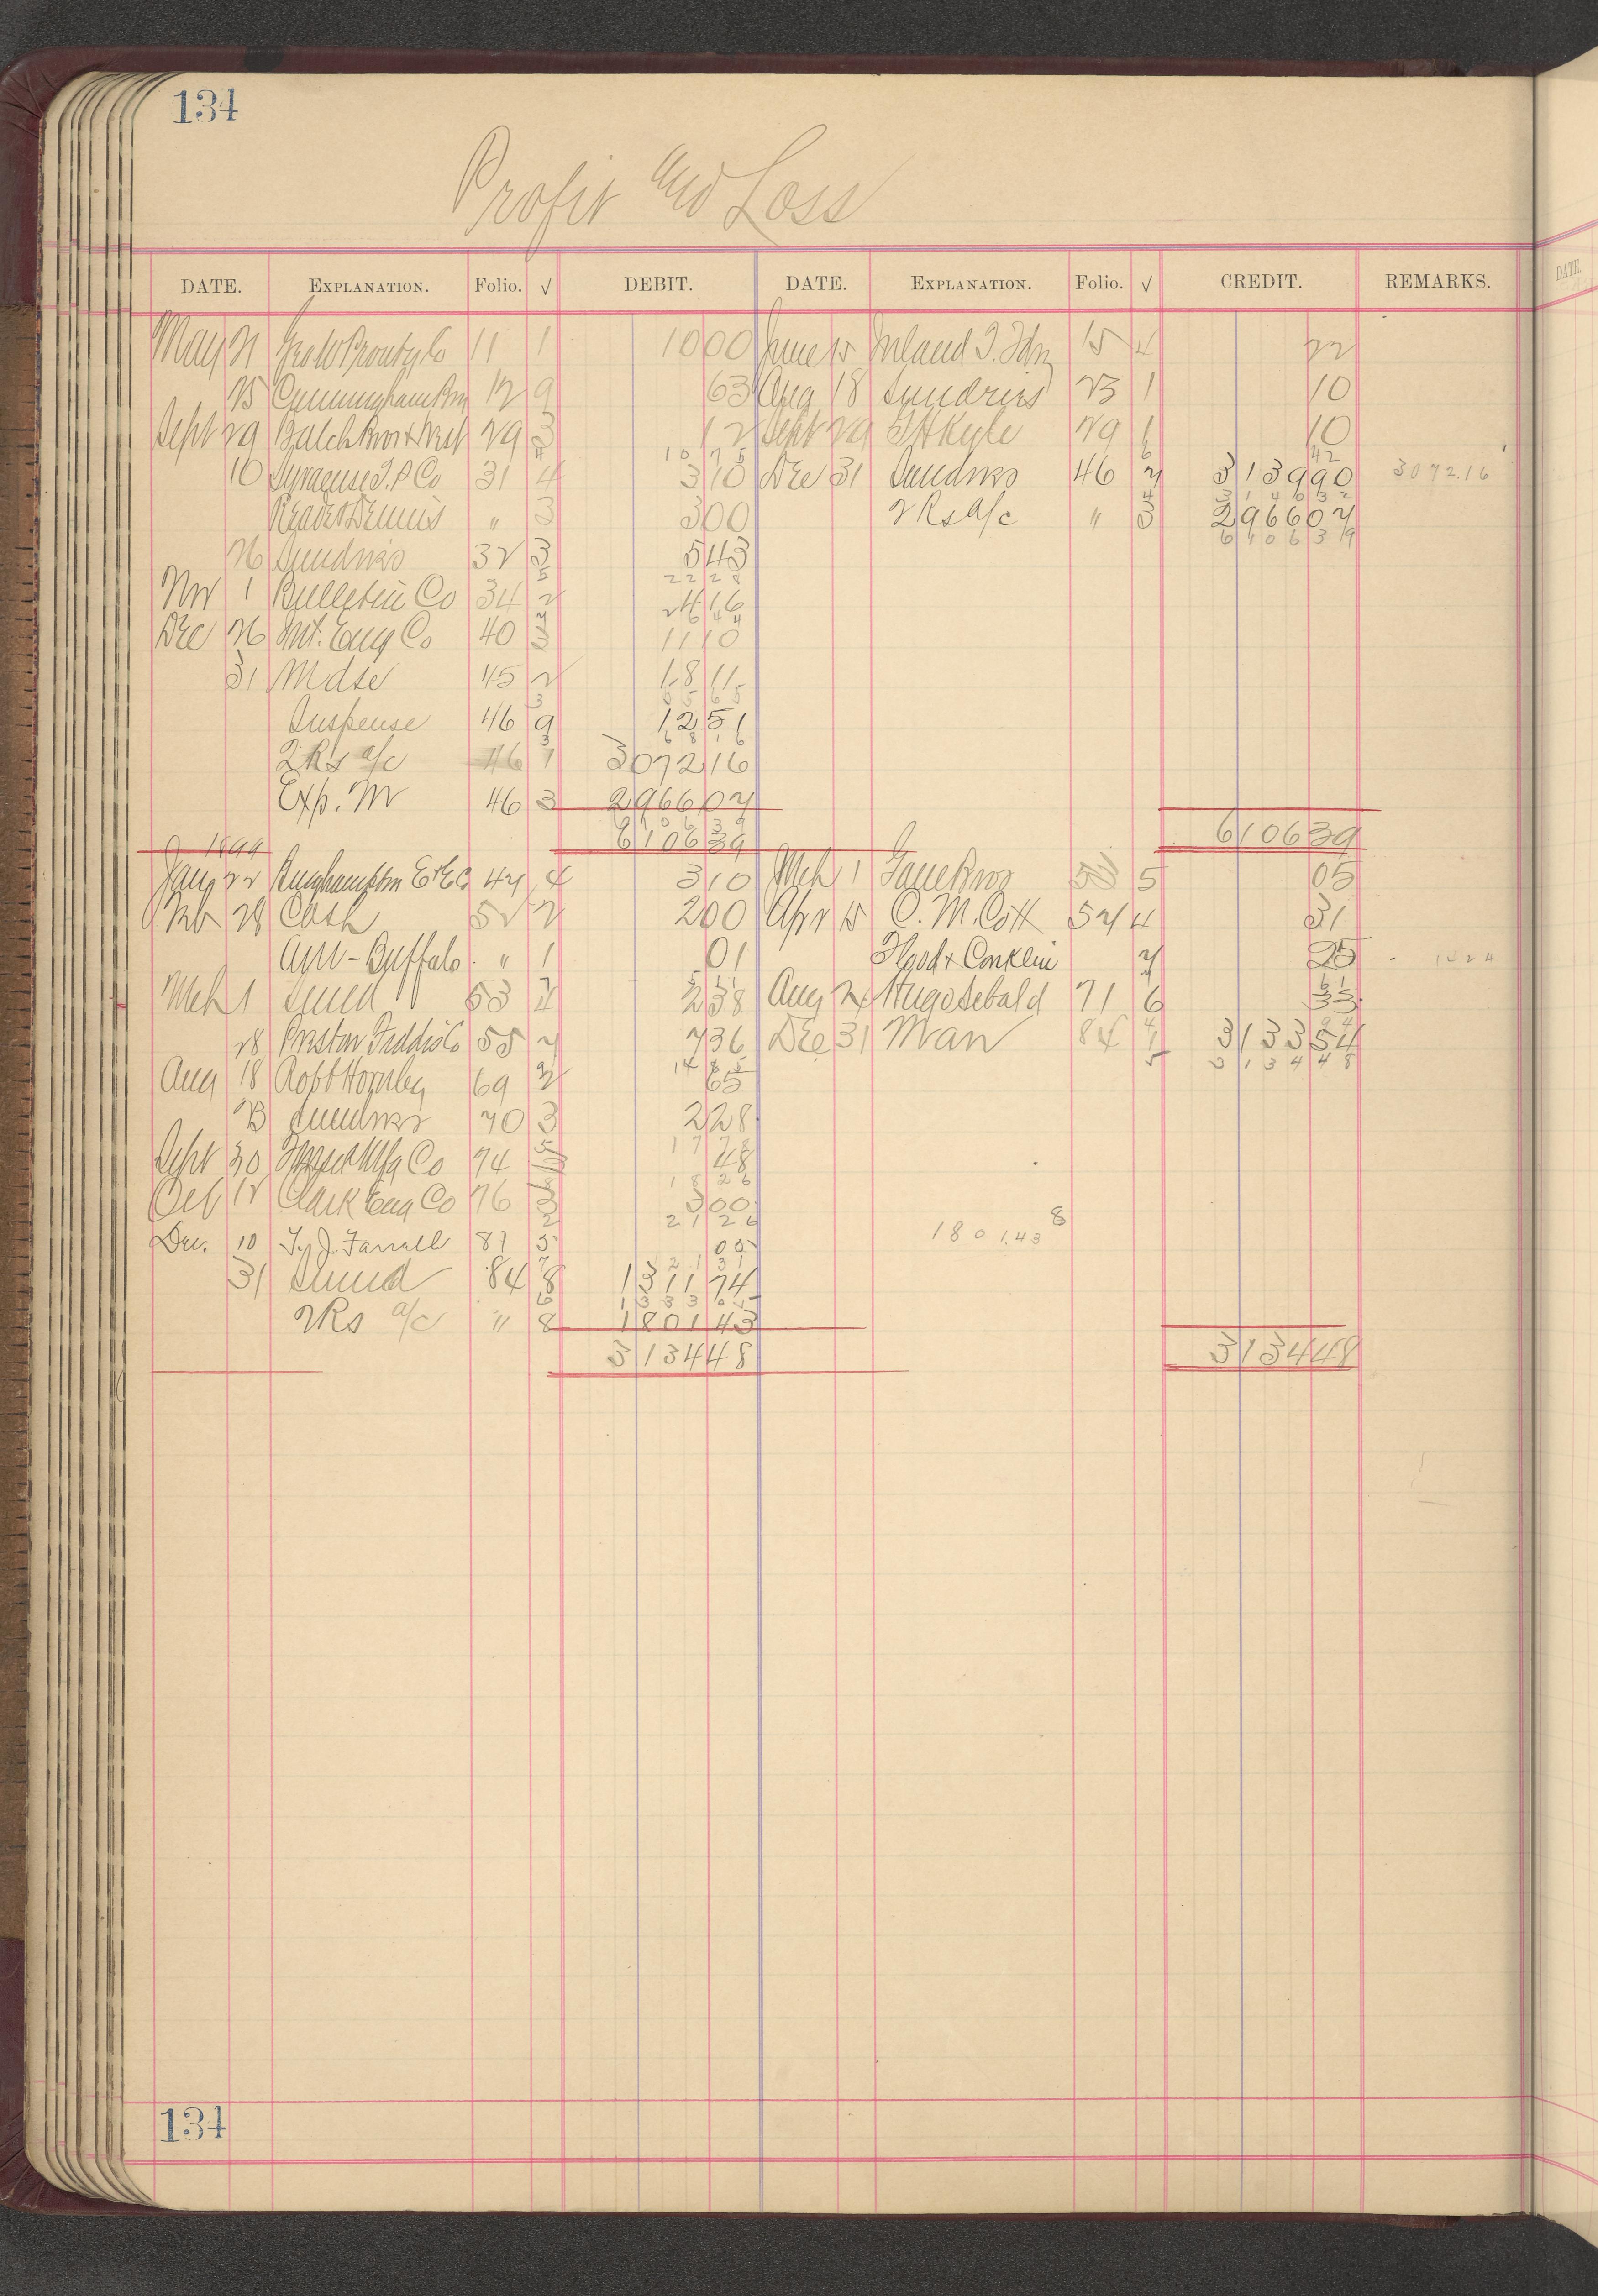 134
Profit and Loss
DATE. EXPLANATION. Folio. √ DEBIT. DATE. EXPLANATION. Folio. √ CREDIT. REMARKS.
May 31 Geo W Prouty Co 11 1 10 00 June 15 Inland T. 15 4 22
25 Cunningham Bros 12 9 63 Aug 18 Sundries 23 1 10
Sept 29 Balch Bros & West 29 3 12 Sept 29 29 1 10
10 75 6 42
10 Syracuse T. P Co 31 4 3 10 Dec 31 Sundries 46 2 3139 90 3072.16
4 3140 32
" 3 3 00 2 Rs a/c " 3 2966 07
6106 39
26 Sundries 32 3 5 43
5 22 28
Nov 1 Bulletin Co 34 2 24 16
Dec 26 Int. Eng Co 40 3 11 10
31 Mdse 45 2 18 11
Suspense 46 9 12 51
2 Rs a/c 46 1 3072 16
Exp. M 46 3 2966 07
6106 39 6106 39
1894
Jan 22 Binghampton E & E Co 47 4 3 10 Mch 1 Lane Bros 53 5 05
Feb 28 Cash 52 2 2 00 Apr 15 C. M. Cott 57 4 31
Am - Buffalo " 1 01 Flood & Conklin 7 25
Mch 1 Sund 53 1 2 38 Aug 24 Hugo Sebald 71 6 33
28 Preston Faddis Co 55 7 7 36 Dec 31 Man 84 4 3133 54
5 3134 48
Aug 18 Robt Hornby 69 2 65
23 Sundries 70 3 2 28
17 78
Sept 30 Mfg Co 74 48
18 26
Oct 12 Clark Eng Co 76 3 3 00
2 21 26 1801.43 8
Dec. 10 T. J. Farrell 81 5 05
21 31
31 Sund 84 8 1311 74
6 1333 05
2 Rs a/c " 8 1801 43
3134 48 3134 48
134